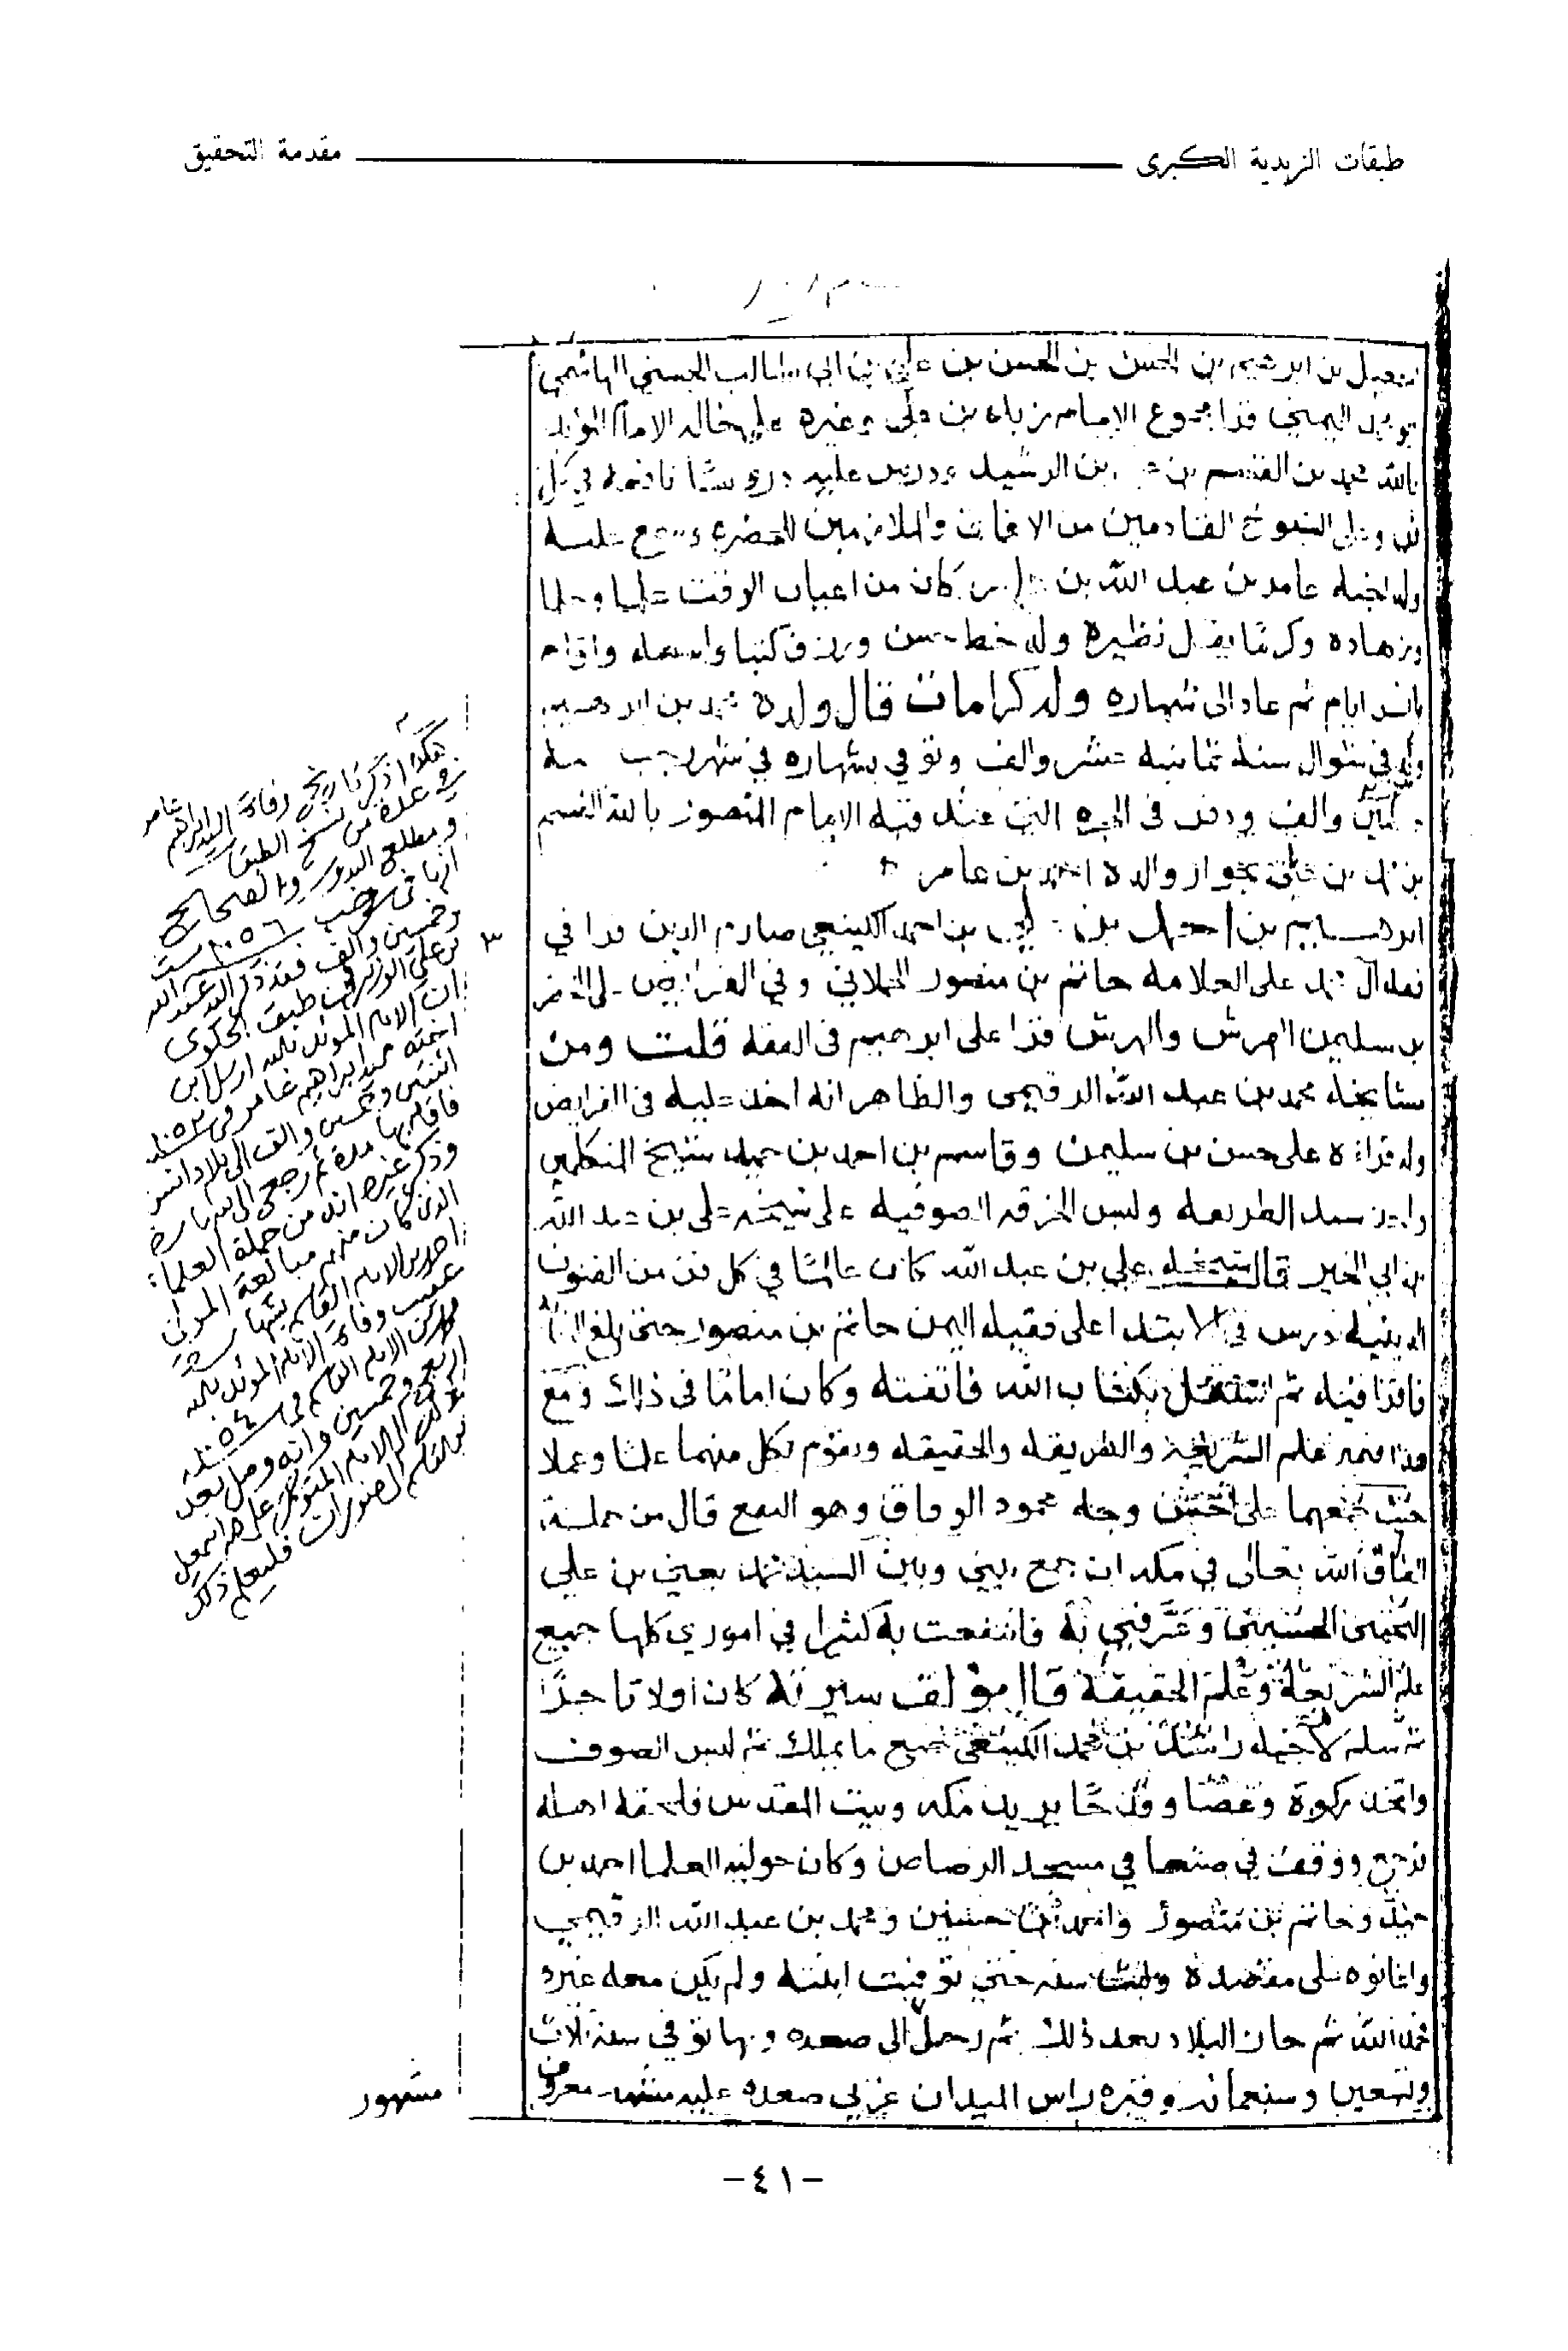 طبقات الزيدية الكبرى
مقدمة التحقيق
بن ابرهيم بن الحسن بن الحسن بن علي بن ابي طالب الحسني الهاشمي
اليمني قرا مجموع الامام زيد بن علي وغيره على خاله الامام المويد
بالله محمد بن القسم بن بن الرشيد ودرس عليه دروسًا نافعه في كل
وعلى الشيوخ القادمين من الافاق والملازمين للحضره وسمع عليه
ولد اخيه عامر بن عبد الله بن كان من اعيان الوقت علما وحلما
وزهاده وكرمًا يقل نظيره وله خط حسن ورزق كتبا واسعه واقام
ايام ثم عاد الى شهاره وله كرامات قال ولده محمد بن ابرهيم
ولد في شوال سنة ثمانيه عشر والف وتوفي بشهاره في شهر رجب سنه
والف ودفن في عند قبة الامام المنصور بالله القسم
بن محمد بن علي بجوار والده احمد بن عامر
ابرهيم بن احمد بن علي بن احمد الكينعي صارم الدين قرا في
فقه آل محمد على العلامه حاتم بن منصور الحملاني وفي الفرايض على الخضر
بن سليمن الهرش والهرش قرا على ابرهيم في الفقه قلت ومن
مشايخه محمد بن عبد الله الرقيمي والظاهر انه اخذ عليه في الفرايض
وله قراءه على حسن بن سليمن وقاسم بن احمد بن حميد شيخ المتكلمين
واخذ سند الطريقه ولبس الخرقه الصوفيه على شيخه علي بن عبد الله
بن ابي الخير قال شيخه علي بن عبد الله كان عالمًا في كل فن من الفنون
الدينيه درس في الابتدا على فقيه اليمن حاتم بن منصور حتى بلغ
فاقرا فيه ثم اشتغل بكتاب الله فاتقنه وكان امامًا في ذلك ومع
هذا فهم علم الشريعة والطريقه والحقيقه ويقوم بكل منهما علمًا وعملا
حيث يجمعهما على احسن وجه محمود الوفاق وهو الجمع قال من جملة
اتفاق الله تعالى في مكه ان جمع بيني وبين السيد محمد يحيى بن علي
الحسيني وعرفني به فانتفعت به كثيرا في اموري كلها جميع
علم الشريعة وعلم الحقيقة قال مؤلف سيرته كان اولا تاجرًا
ثم سلم لاخيه راشد بن محمد الكينعي جميع ما يملك ثم لبس الصوف
واتخذ ركوة وعصًا وقد حجًا يريد مكه وبيت المقدس فلحقه اهله
فرجع ووقف في صنعا في مسجد الرصاص وكان حوليه العلما احمد بن
حميد وحاتم بن منصور واحمد بن حسين ومحمد بن عبد الله الرقيمي
واعانوه على مقصده ولبث سنه حتى توفيت ابنته ولم يكن معه غيره
فحمد الله ثم جاز البلاد بعد ذلك ثم رحل الى صعده وبها توفي سنة ثلاث
وتسعين وسبعمائه وقبره راس الميدان غربي صعده عليه مشهد معروف
مشهور
هكذا ذكر تاريخ وفاة السيد ابراهيم عامر
في عدة من نسخ الطبقات
ومطلع البدور والصحائح
انها في رجب ١٠٥٦ ست
وخمسين والف فقد ذكر السيد عبد الله
بن علي الوزير في طبق الحلوى
ان الامام المويد بالله ارسل ابن
اخته السيد ابراهيم عامر في ١٠٥٢ سنه
اثنتين وخمسين والف الى بلاد انس
فاقام بها مدة ثم رجع الى
وذكر غيره انه من جملة العلماء
الذين كان منهم مبايعة المولى
احمد بن الامام القاسم بشهاره
عقيب وفاة الامام المويد بالله
محمد بن الامام القاسم في ١٠٥٤ سنه
اربع وخمسين وانه وصل بعد
ذلك الى الامام المتوكل على الله اسمعيل
بن القاسم فليعلم ذلك
-٤١-